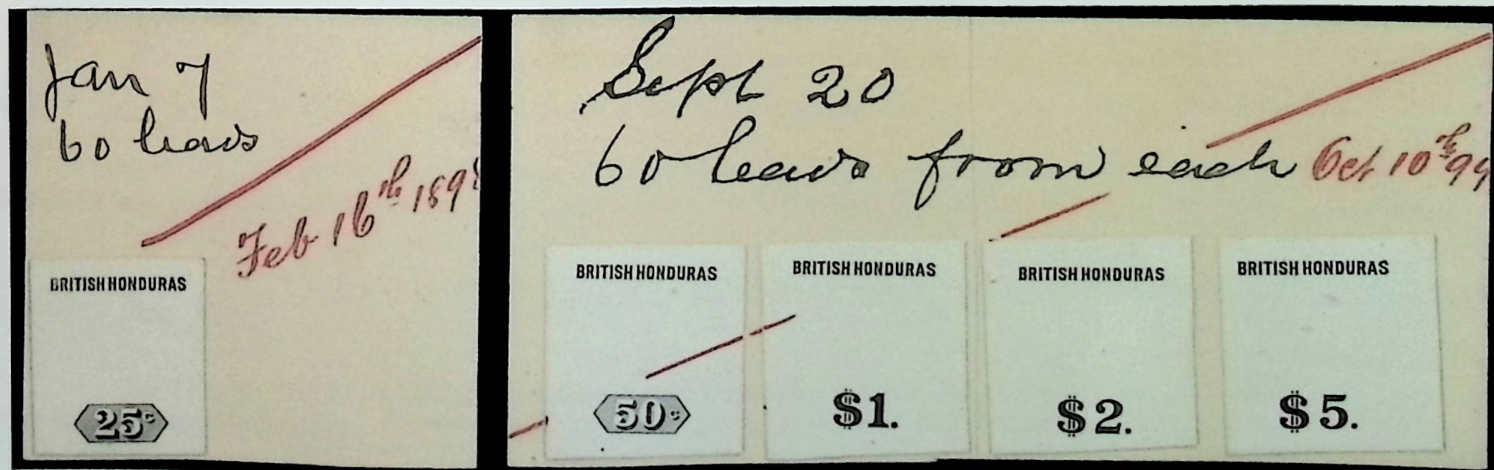 Jan 7
60 leads
Feb 16th 1898
BRITISH HONDURAS
25c
Sept 20
60 leads from each
Oct 10th 99
BRITISH HONDURAS
50c
BRITISH HONDURAS
$1.
BRITISH HONDURAS
$2.
BRITISH HONDURAS
$5.